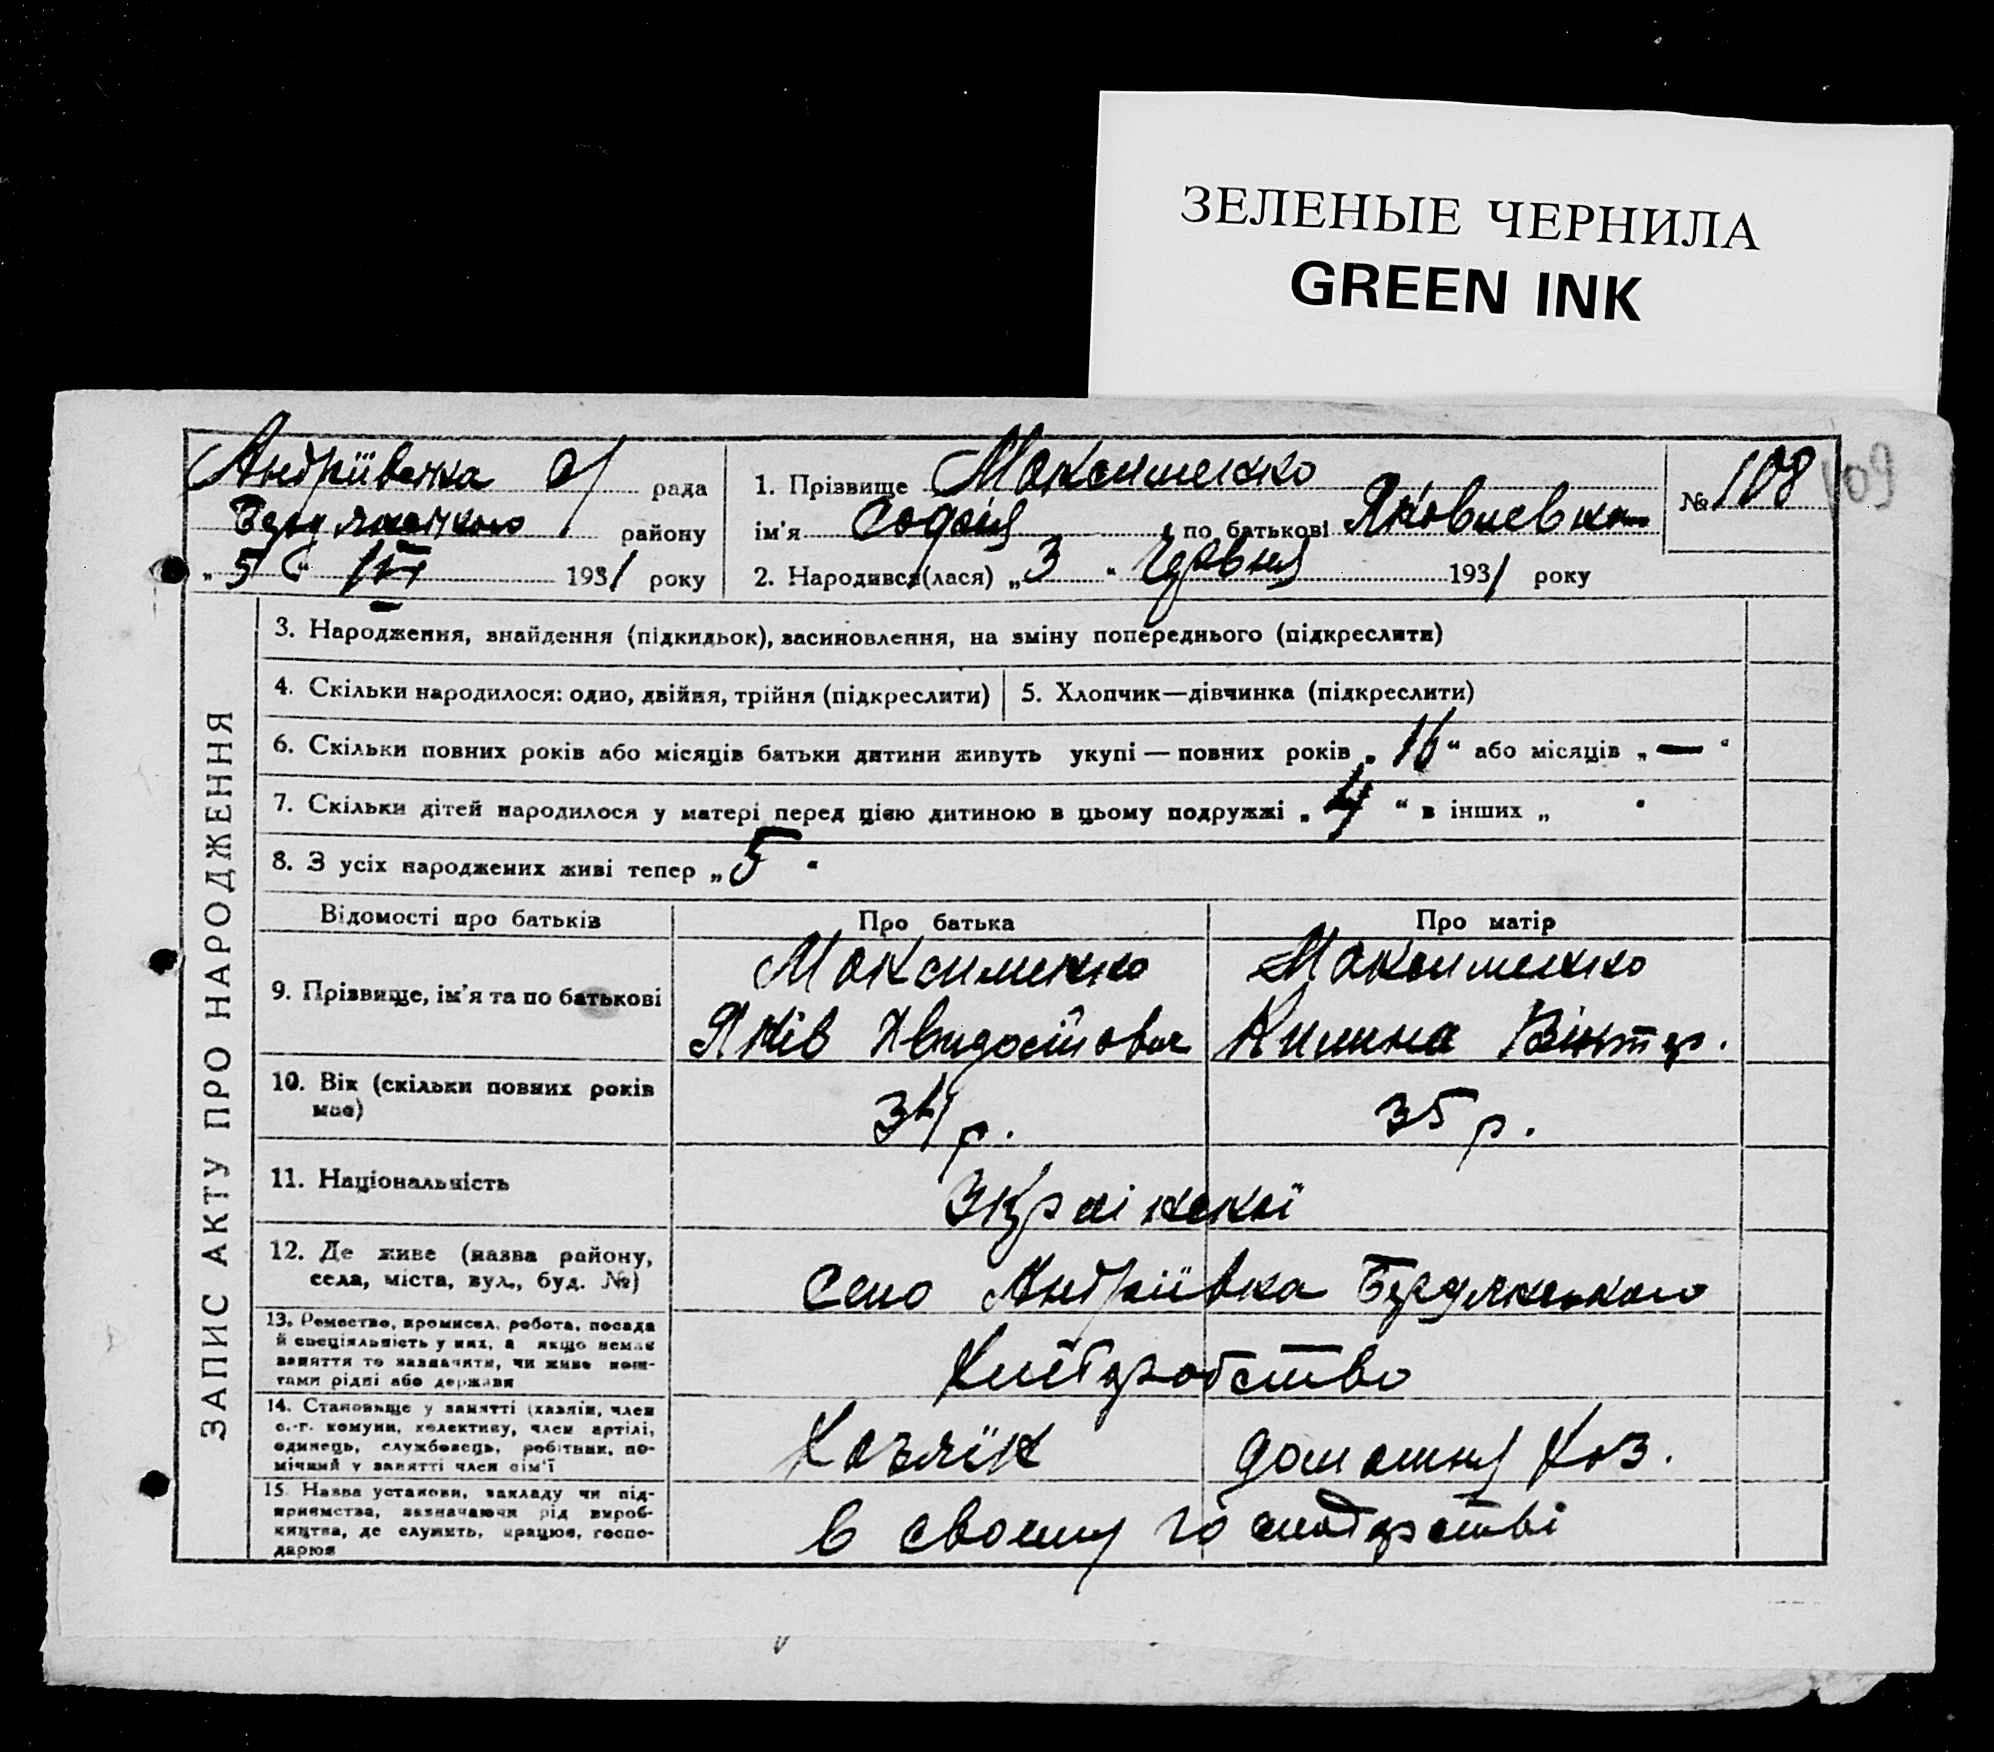 ЗЕЛЕНЫЕ ЧЕРНИЛА
GREEN INK
Андріївська с/ рада
Бердянського району
„5“ VI 1931 року
1. Прізвище Максименко
ім'я Софія по батькові Яковлевна
№ 108
109
2. Народився(лася) „3“ Червня 1931 року
ЗАПИС АКТУ ПРО НАРОДЖЕННЯ
3. Народження, знайдення (підкидьок), засиновлення, на зміну попереднього (підкреслити)
4. Скільки народилося: одно, двійня, трійня (підкреслити)
5. Хлопчик—дівчинка (підкреслити)
6. Скільки повних років або місяців батьки дитини живуть укупі — повних років „16“ або місяців „—“
7. Скільки дітей народилося у матері перед цією дитиною в цьому подружжі „4“ в інших „ “
8. З усіх народжених живі тепер „5“
Відомості про батьків
Про батька
Про матір
9. Прізвище, ім'я та по батькові
Максименко
Яків
Максименко
Килина
10. Вік (скільки повних років
має)
34 р.
35 р.
11. Національність
Українскої
12. Де живе (назва району,
села, міста, вул., буд. №)
Село Андріївка Бердянського
13. Ремество, промисел, робота, посада
й спеціяльність у них, а якщо немає
заняття то зазначити, чи живе кош-
тами рідні або держави
Хліборобство
14. Становище у занятті (хазяїн, член
с.-г. комуни, колективу, член артілі,
одинець, службовець, робітник, по-
мічний у занятті член сім'ї
Хазяїн
домашня Хоз.
15. Назва установи, закладу чи під-
приємства, зазначаючи рід вироб-
ництва, де служить, працює, госпо-
дарює
в своему господарстві